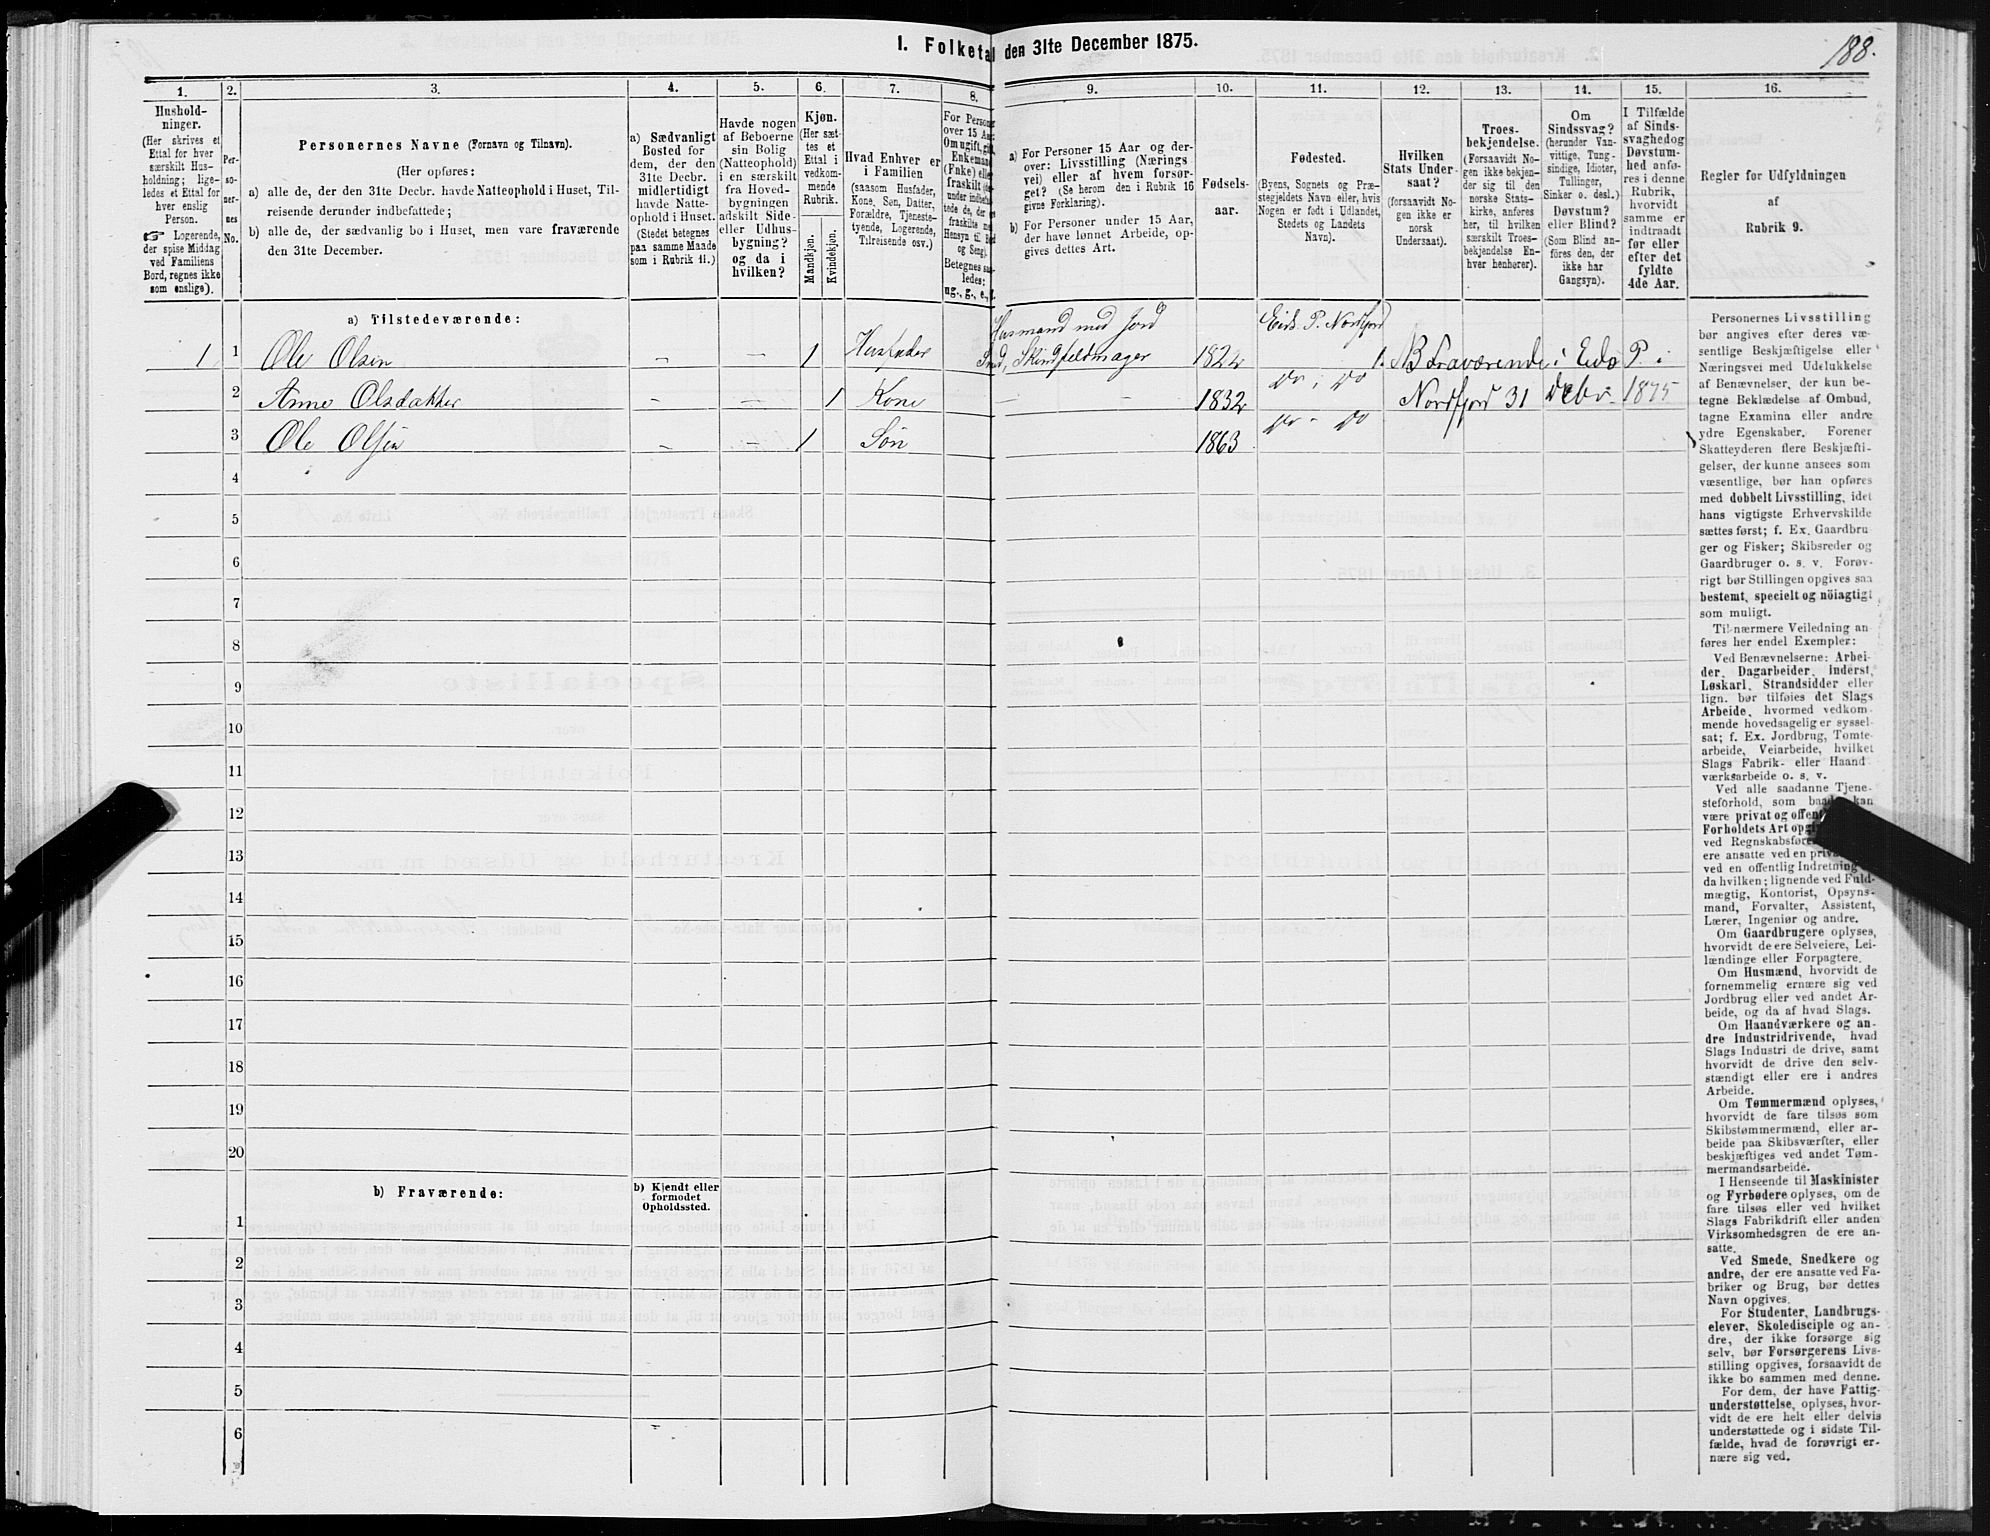 I. Folketal den 31te December 1875.
188.
1.
Hushold-
ninger.
(Her skrives et
Ettal for hver
særskilt Hus-
holdning; lige-
ledes et Ettal for
hver enslig
Person.
☞ Logerende,
der spise Middag
ved Familiens
Bord, regnes ikke
som enslige).
2.
Per-
so-
ner-
nes
No.
3.
Personernes Navne (Fornavn og Tilnavn).
(Her opføres:
a) alle de, der den 31te Decbr. havde Natteophold i Huset, Til-
reisende derunder indbefattede;
b) alle de, der sædvanlig bo i Huset, men vare fraværende
den 31te December.
4.
a) Sædvanligt
Bosted for
dem, der den
31te Decbr.
midlertidigt
havde Natte-
ophold i Huset.
(Stedet betegnes
paa samme Maade
som i Rubrik 11.)
5.
Havde nogen
af Beboerne
sin Bolig
(Natteophold)
i en særskilt
fra Hoved-
bygningen
adskilt Side-
eller Udhus-
bygning?
og da i
hvilken?
6.
Kjøn.
(Her sæt-
tes et
Ettal i
vedkom-
mende
Rubrik.
Mandkjøn.
Kvindekjøn.
7.
Hvad Enhver er
i Familien
(saasom Husfader,
Kone, Søn, Datter,
Forældre, Tjeneste-
tyende, Logerende,
Tilreisende osv.)
8.
For Person
over 15 Aa
Om ugift, gif
Enkemand
(Enke) elle
fraskilt
under indbefat
tede de, der
fraskilte
Hensyn til Bo
og Seng).
Betegnes saa-
ledes:
ug., g., e.,
9.
a) For Personer 15 Aar og der-
over: Livsstilling (Nærings
vei) eller af hvem forsør-
get? (Se herom den i Rubrik 16
givne Forklaring).
b) For Personer under 15 Aar,
der have lønnet Arbeide, op-
gives dettes Art.
10.
Fødsels-
aar.
11.
Fødested.
(Byens, Sognets og Præ-
stegjeldets Navn eller, hvis
Nogen er født i Udlandet,
Stedets og Landets
Navn).
12.
Hvilken
Stats Under-
saat?
(forsaavidt No-
gen ikke er
norsk
Undersaat).
13.
Troes-
bekjendelse.
(Forsaavidt No-
gen ikke bekjen-
der sig til den
norske Stats-
kirke, anføres
her, til hvilken
særskilt Troes-
bekjendelse En-
hver henhører).
14.
Om
Sindssvag?
(herunder Van-
vittige, Tung-
sindige, Idioter,
Tullinger,
Sinker o. desl.)
Døvstum?
eller Blind?
(Som Blind an-
føres den, der
ikke har
Gangsyn).
15.
I Tilfælde
af Sinds-
svaghed og
Døvstum-
hed anfø-
res i denne
Rubrik,
hvorvidt
samme er
indtraadt
før eller
efter det
fyldte
4de Aar.
16.
Regler for Udfyldningen
af
Rubrik 9.
a) Tilstedeværende:
Husmand med Jord
Eids P. Nordfjord
1 1 Ole Olsen – – 1 Husfader Smed, Skindfeldmager 1822 1. NB Fraværende i Eids P. i
2 Anne Olsdatter – – 1 Kone – – 1832 Do i Do Nordfjord 31 Debr. 1875
3 Ole Olsen – – 1 Søn 1863 Do – Do
4
5
6
7
8
9
10
11
12
13
14
15
16
17
18
19
20
b) Fraværende:
b) Kjendt eller
formodet
Opholdssted.
1
2
3
4
5
6
Personernes Livsstilling
bør angives efter deres væ-
sentlige Beskjæftigelse eller
Næringsvei med Udelukkelse
af Benævnelser, der kun be-
tegne Beklædelse af Ombud,
tagne Examina eller andre
ydre Egenskaber. Forener
Skatteyderen flere Beskjæfti-
gelser, der kunne ansees som
væsentlige, bør han opføres
med dobbelt Livsstilling, idet
hans vigtigste Erhvervskilde
sættes først; f. Ex. Gaardbru-
ger og Fisker; Skibsreder og
Gaardbruger o. s. v. Forøv-
rigt bør Stillingen opgives saa
bestemt, specielt og nöiagtigt
som muligt.
Til nærmere Veiledning an
føres her endel Exempler:
Ved Benævnelserne: Arbei-
der, Dagarbeider, Inderst,
Løskarl, Strandsidder eller
lign. bør tilføies det Slags
Arbeide, hvormed vedkom-
mende hovedsagelig er syssel-
sat; f. Ex. Jordbrug, Tomte-
arbeide, Veiarbeide, hvilket
Slags Fabrik- eller Haand
værksarbeide o. s. v.
Ved alle saadanne Tjene-
steforhold, som baade kan
være privat og offent
Forholdets Art opgi
ved Regnskabsføre
ere ansatte ved en priv
ved en offentlig Indretning
da hvilken; lignende ved Fuld-
mægtig, Kontorist, Opsyns-
mand, Forvalter, Assistent,
Lærer, Ingeniør og andre.
Om Gaardbrugere oplyses,
hvorvidt de ere Selveiere, Lei-
lændinge eller Forpagtere.
Om Husmænd, hvorvidt de
fornemmelig ernære sig ved
Jordbrug eller ved andet Ar-
beide, og da af hvad Slags.
Om Haandværkere og an-
dre Industridrivende, hvad
Slags Industri de drive, samt
hvorvidt de drive den selv-
stændigt eller ere i andres
Arbeide.
Om Tømmermænd oplyses,
hvorvidt de fare tilsøs som
Skibstømmermænd, eller ar-
beide paa Skibsværfter, eller
beskjæftiges ved andet Tøm-
mermandsarbeide.
I Henseende til Maskinister
og Fyrbødere oplyses, om de
fare tilsøs eller ved hvilket
Slags Fabrikdrift eller anden
Virksomhedsgren de ere an-
satte.
Ved Smede, Snedkere og
andre, der ere ansatte ved Fa-
briker og Brug, bør dettes
Navn opgives.
For Studenter, Landbrugs-
elever, Skoledisciple og an-
dre, der ikke forsørge sig
selv, bør Forsørgerens Livs-
stilling opgives, forsaavidt de
ikke bo sammen med denne.
For dem, der have Fattig-
understøttelse, oplyses, hvor-
vidt de ere helt eller delvis
understøttede og i sidste Til-
fælde, hvad de forøvrigt er-
nære sig ved.